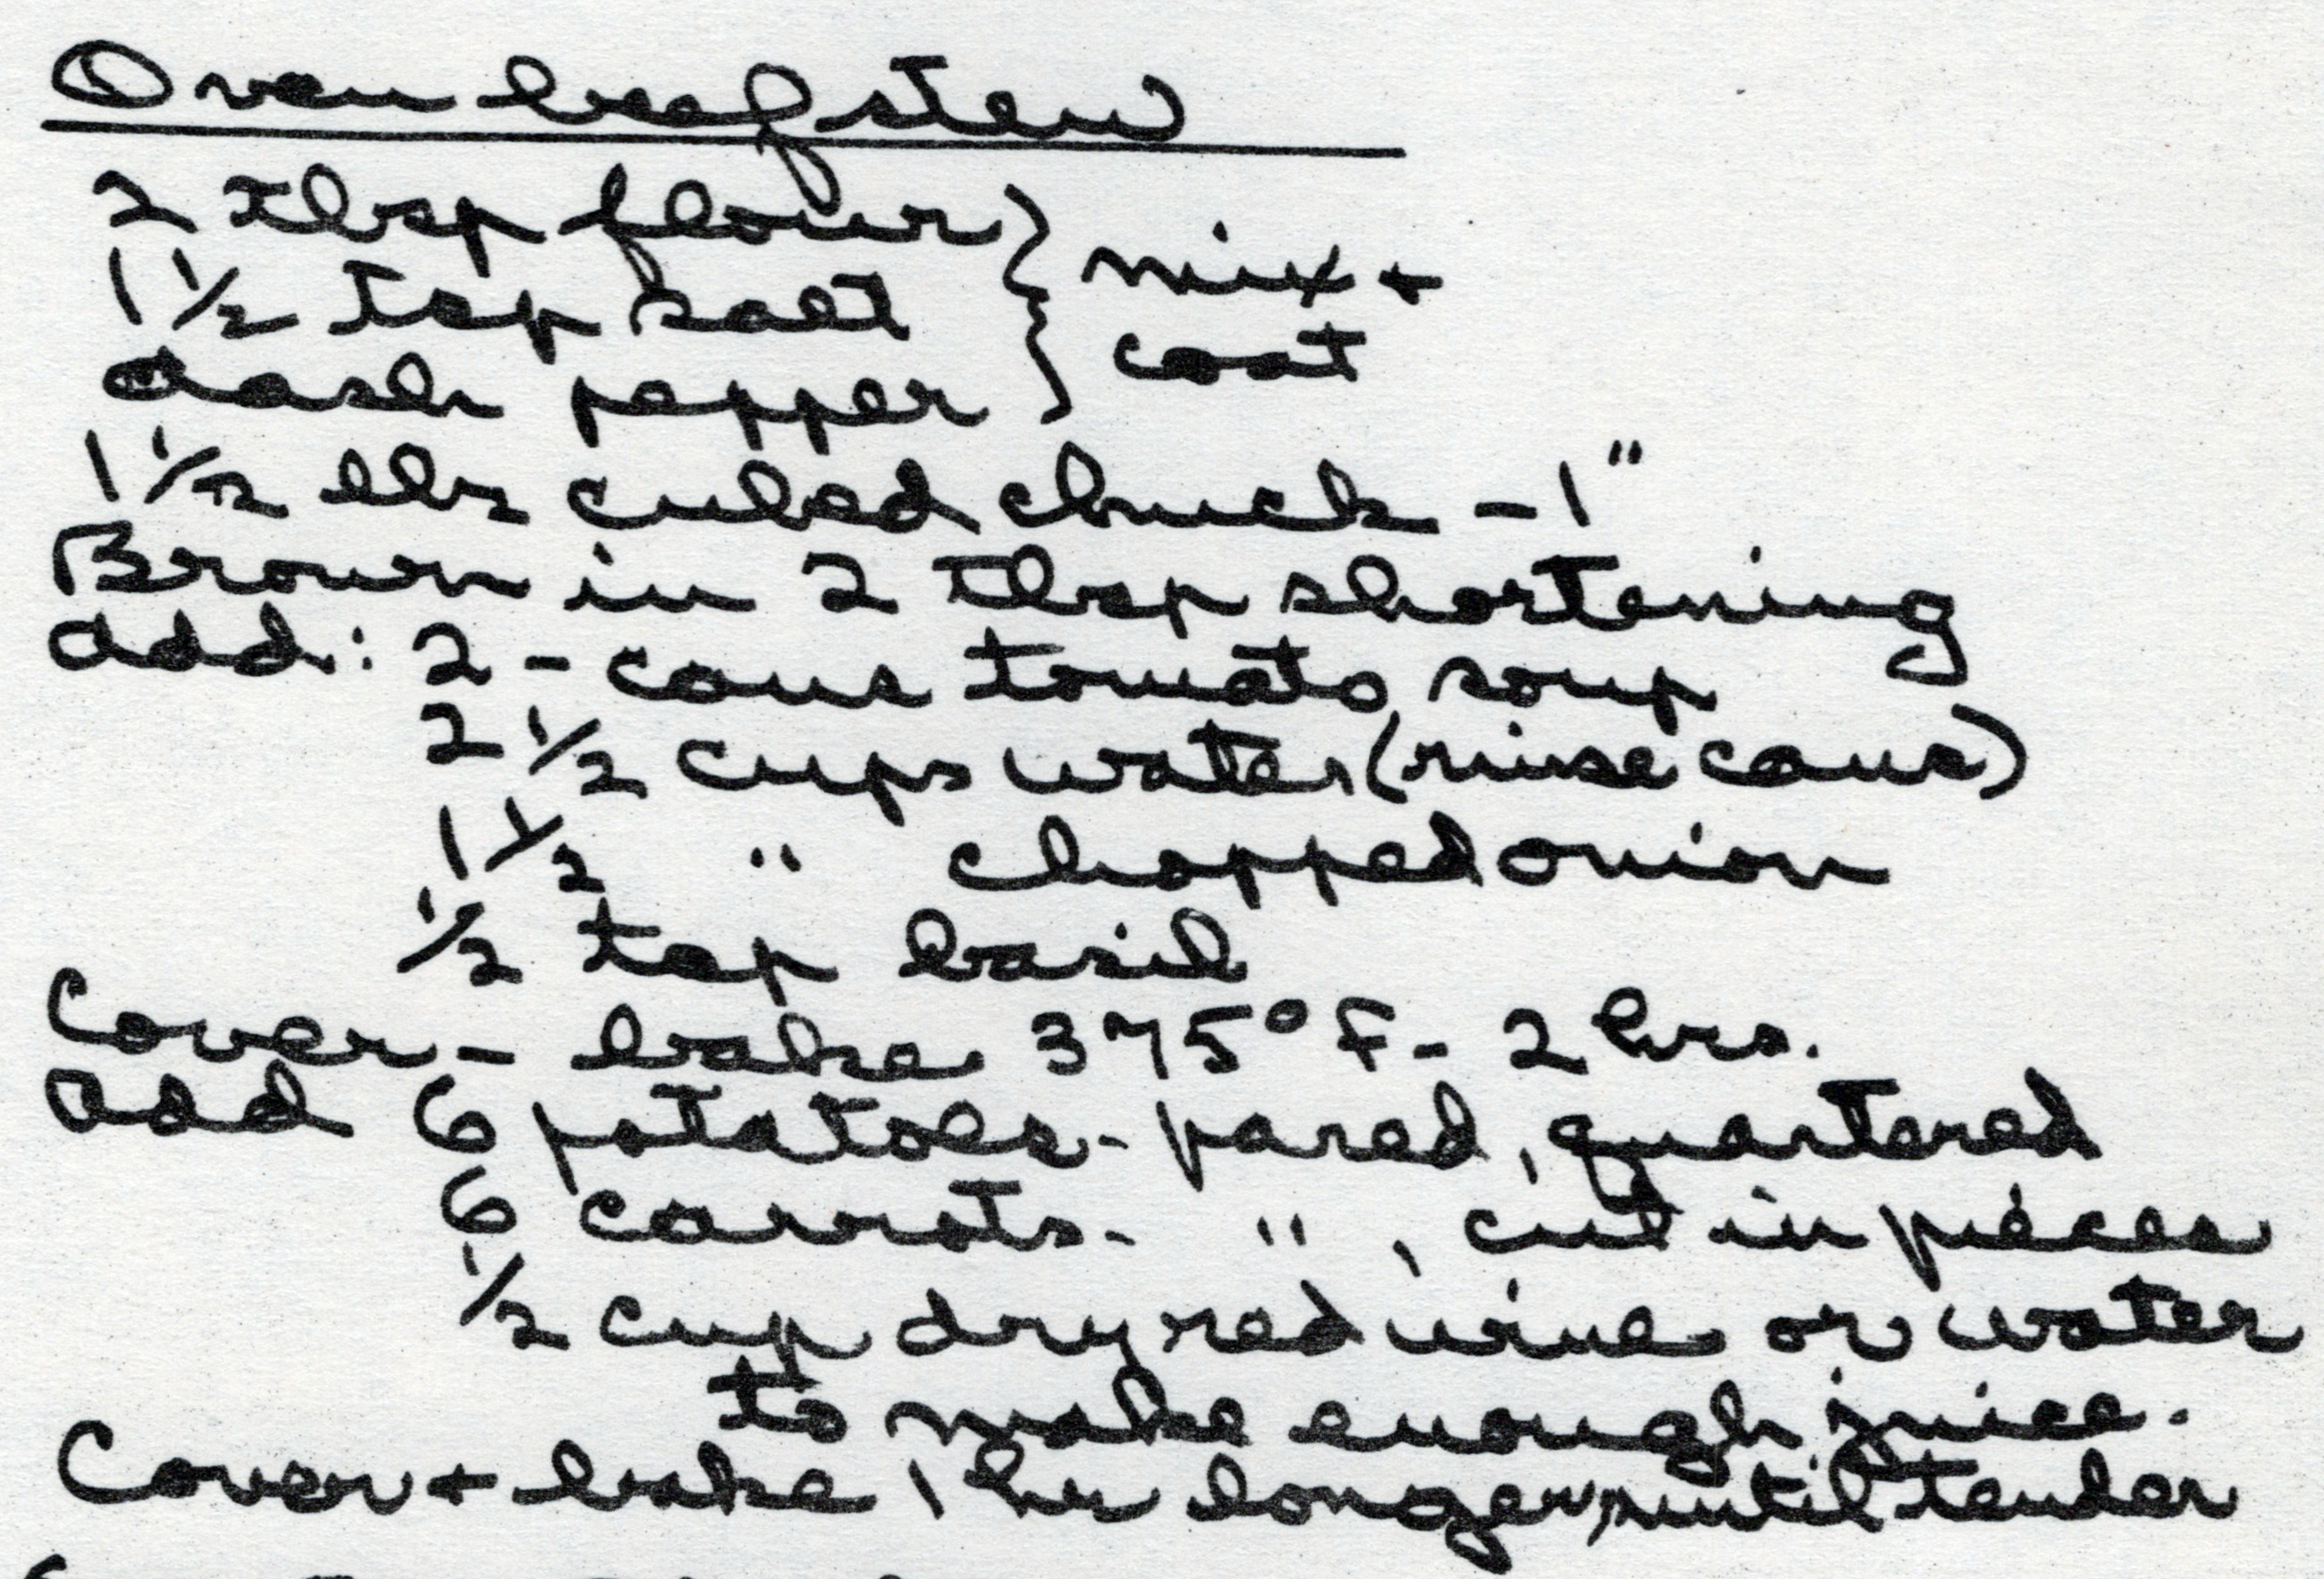 Oven beef stew
2 tbsp flour } mix +
1 1/2 tsp salt } coat
dash pepper
1 1/2 lbs cubed chuck - 1"
Brown in 2 tbsp shortening
add: 2 - cans tomato soup
2 1/2 cups water (rinse cans)
1 1/2 " chopped onion
1/2 tsp basil
Cover - bake 375° F - 2 hrs.
add 6 potatoes - pared, quartered
6 carrots - ", cut in pieces
1/2 cup dry red wine or water
to make enough juice.
Cover + bake 1 hr longer, until tender